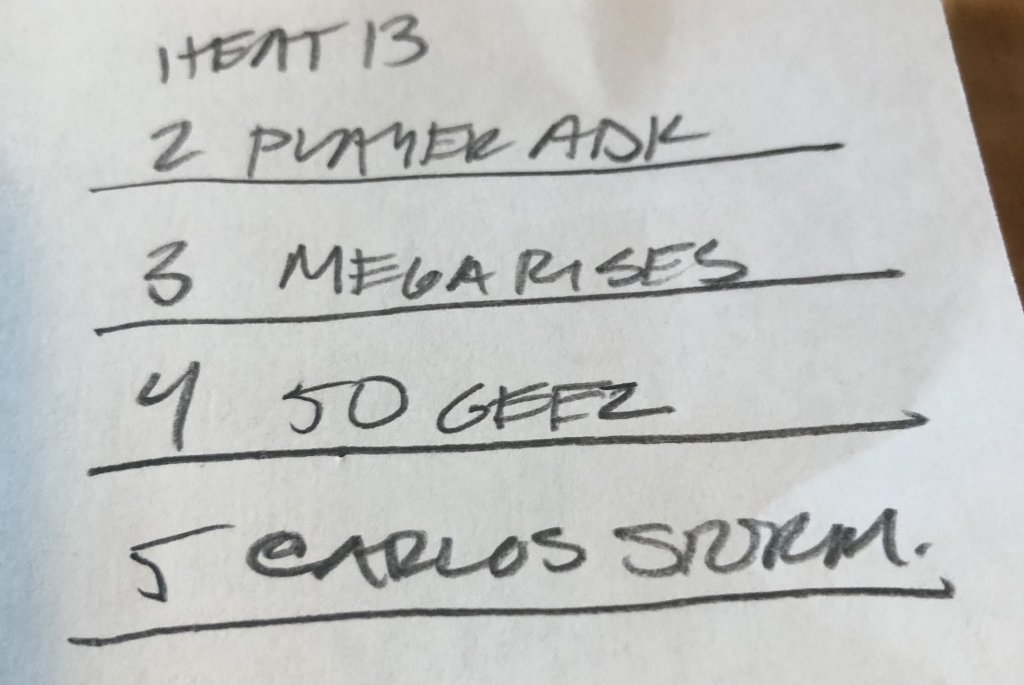 HEAT 13
2 PLAYER ADK
3 MEGA RISES
4 50 GEEZ
5 CARLOS STORM.